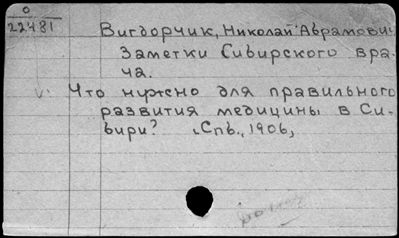 0
22481
Вигдорчик, Николай Абрамович.
Заметки Сибирского вра-
ча.
Что нужно для правильного
развития медицины в Си-
бири? Спб., 1906,